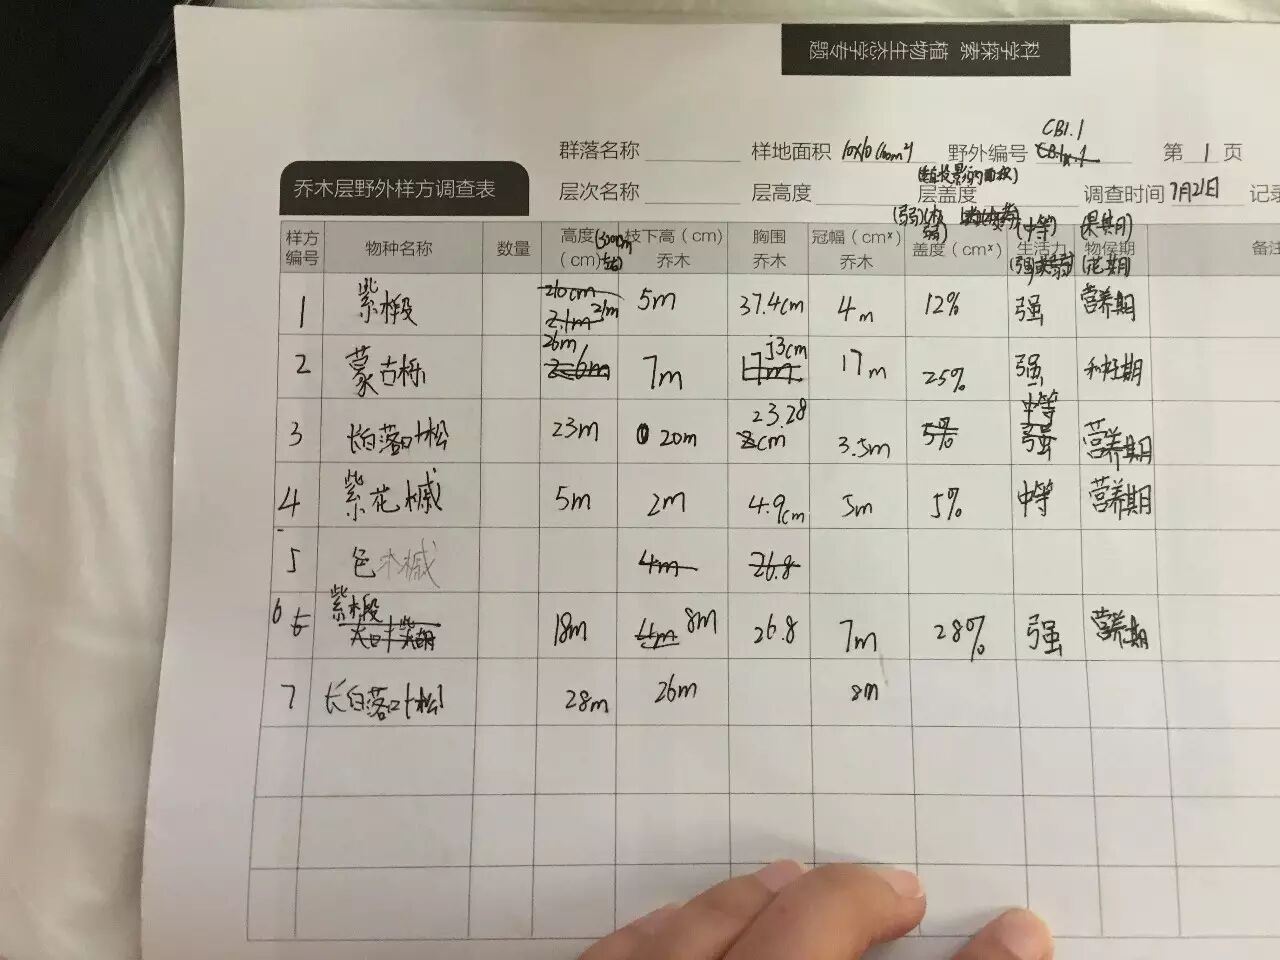 科学探索 植物生态学专题
CB1.1
群落名称 样地面积 10×10 (100m²) 野外编号 第 1 页
(垂直投影的面积)
乔木层野外样方调查表
层次名称 层高度 层盖度 调查时间 7月21日 记录
(中等) (果期)
样方编号 物种名称 数量 高度(cm) 枝下高(cm)乔木 胸围乔木 冠幅(cm×)乔木 盖度(cm×) 生活力 物侯期 备注
(花期)
1 紫椴 21m 5m 37.4cm 4m 12% 强 营养期
2 蒙古栎 26m 7m 17m 25% 强
3 长白落叶松 23m 20m 23.28cm 3.5m 5% 中等 营养期
4 紫花槭 5m 2m 4.9cm 5m 5% 中等 营养期
5 色木槭 4m 26.8
6 紫椴 18m 4m 8m 26.8 7m 28% 强 营养期
7 长白落叶松 28m 26m 8m